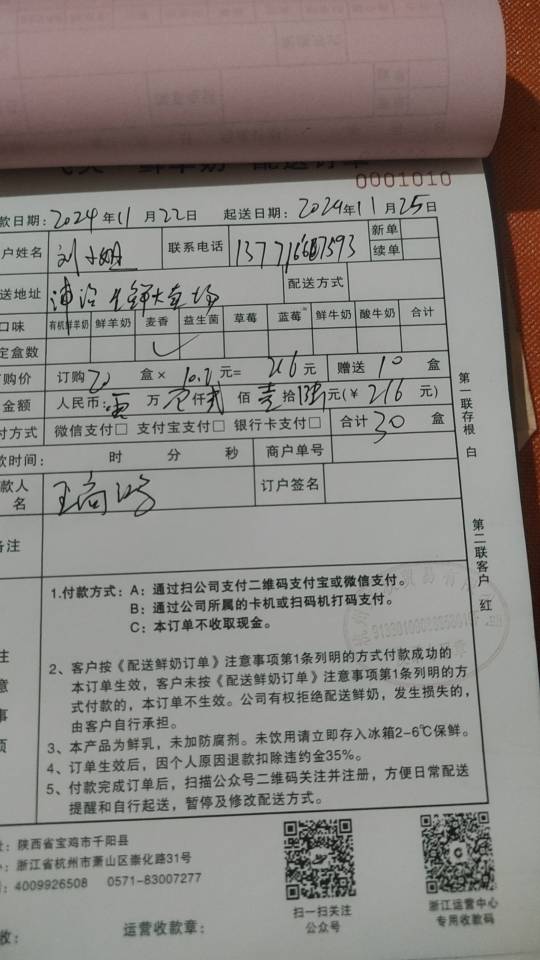 鲜羊奶 配送订单
0001010
款日期：2024年11月22日 起送日期：2024年11月25日
户姓名 刘小姐 联系电话 新单
续单
送地址 配送方式
口味 有机鲜羊奶 鲜羊奶 麦香 益生菌 草莓 蓝莓 鲜牛奶 酸牛奶 合计
定盒数 ✓
购价 订购20盒× 元=216元 赠送10盒
金额 人民币： 万 仟贰佰壹拾 元(￥216元)
付方式 微信支付□ 支付宝支付□ 银行卡支付□ 合计30盒
款时间： 时 分 秒 商户单号
款人
名 订户签名
备注
第一联存根 白
第二联客户 红
1.付款方式：A：通过扫公司支付二维码支付宝或微信支付。
B：通过公司所属的卡机或扫码机打码支付。
C：本订单不收取现金。
2、客户按《配送鲜奶订单》注意事项第1条列明的方式付款成功的
本订单生效，客户未按《配送鲜奶订单》注意事项第1条列明的方
式付款的，本订单不生效。公司有权拒绝配送鲜奶，发生损失的，
由客户自行承担。
3、本产品为鲜乳，未加防腐剂。未饮用请立即存入冰箱2-6℃保鲜。
4、订单生效后，因个人原因退款扣除违约金35%。
5、付款完成订单后，扫描公众号二维码关注并注册，方便日常配送
提醒和自行起送，暂停及修改配送方式。
注
意
事
项
址：陕西省宝鸡市千阳县
浙江省杭州市萧山区崇化路31号
4009926508 0571-83007277
扫一扫关注
公众号
浙江运营中心
专用收款码
收： 运营收款章：